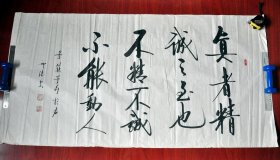 真者精
诚之至也
不精不誠
不能動人